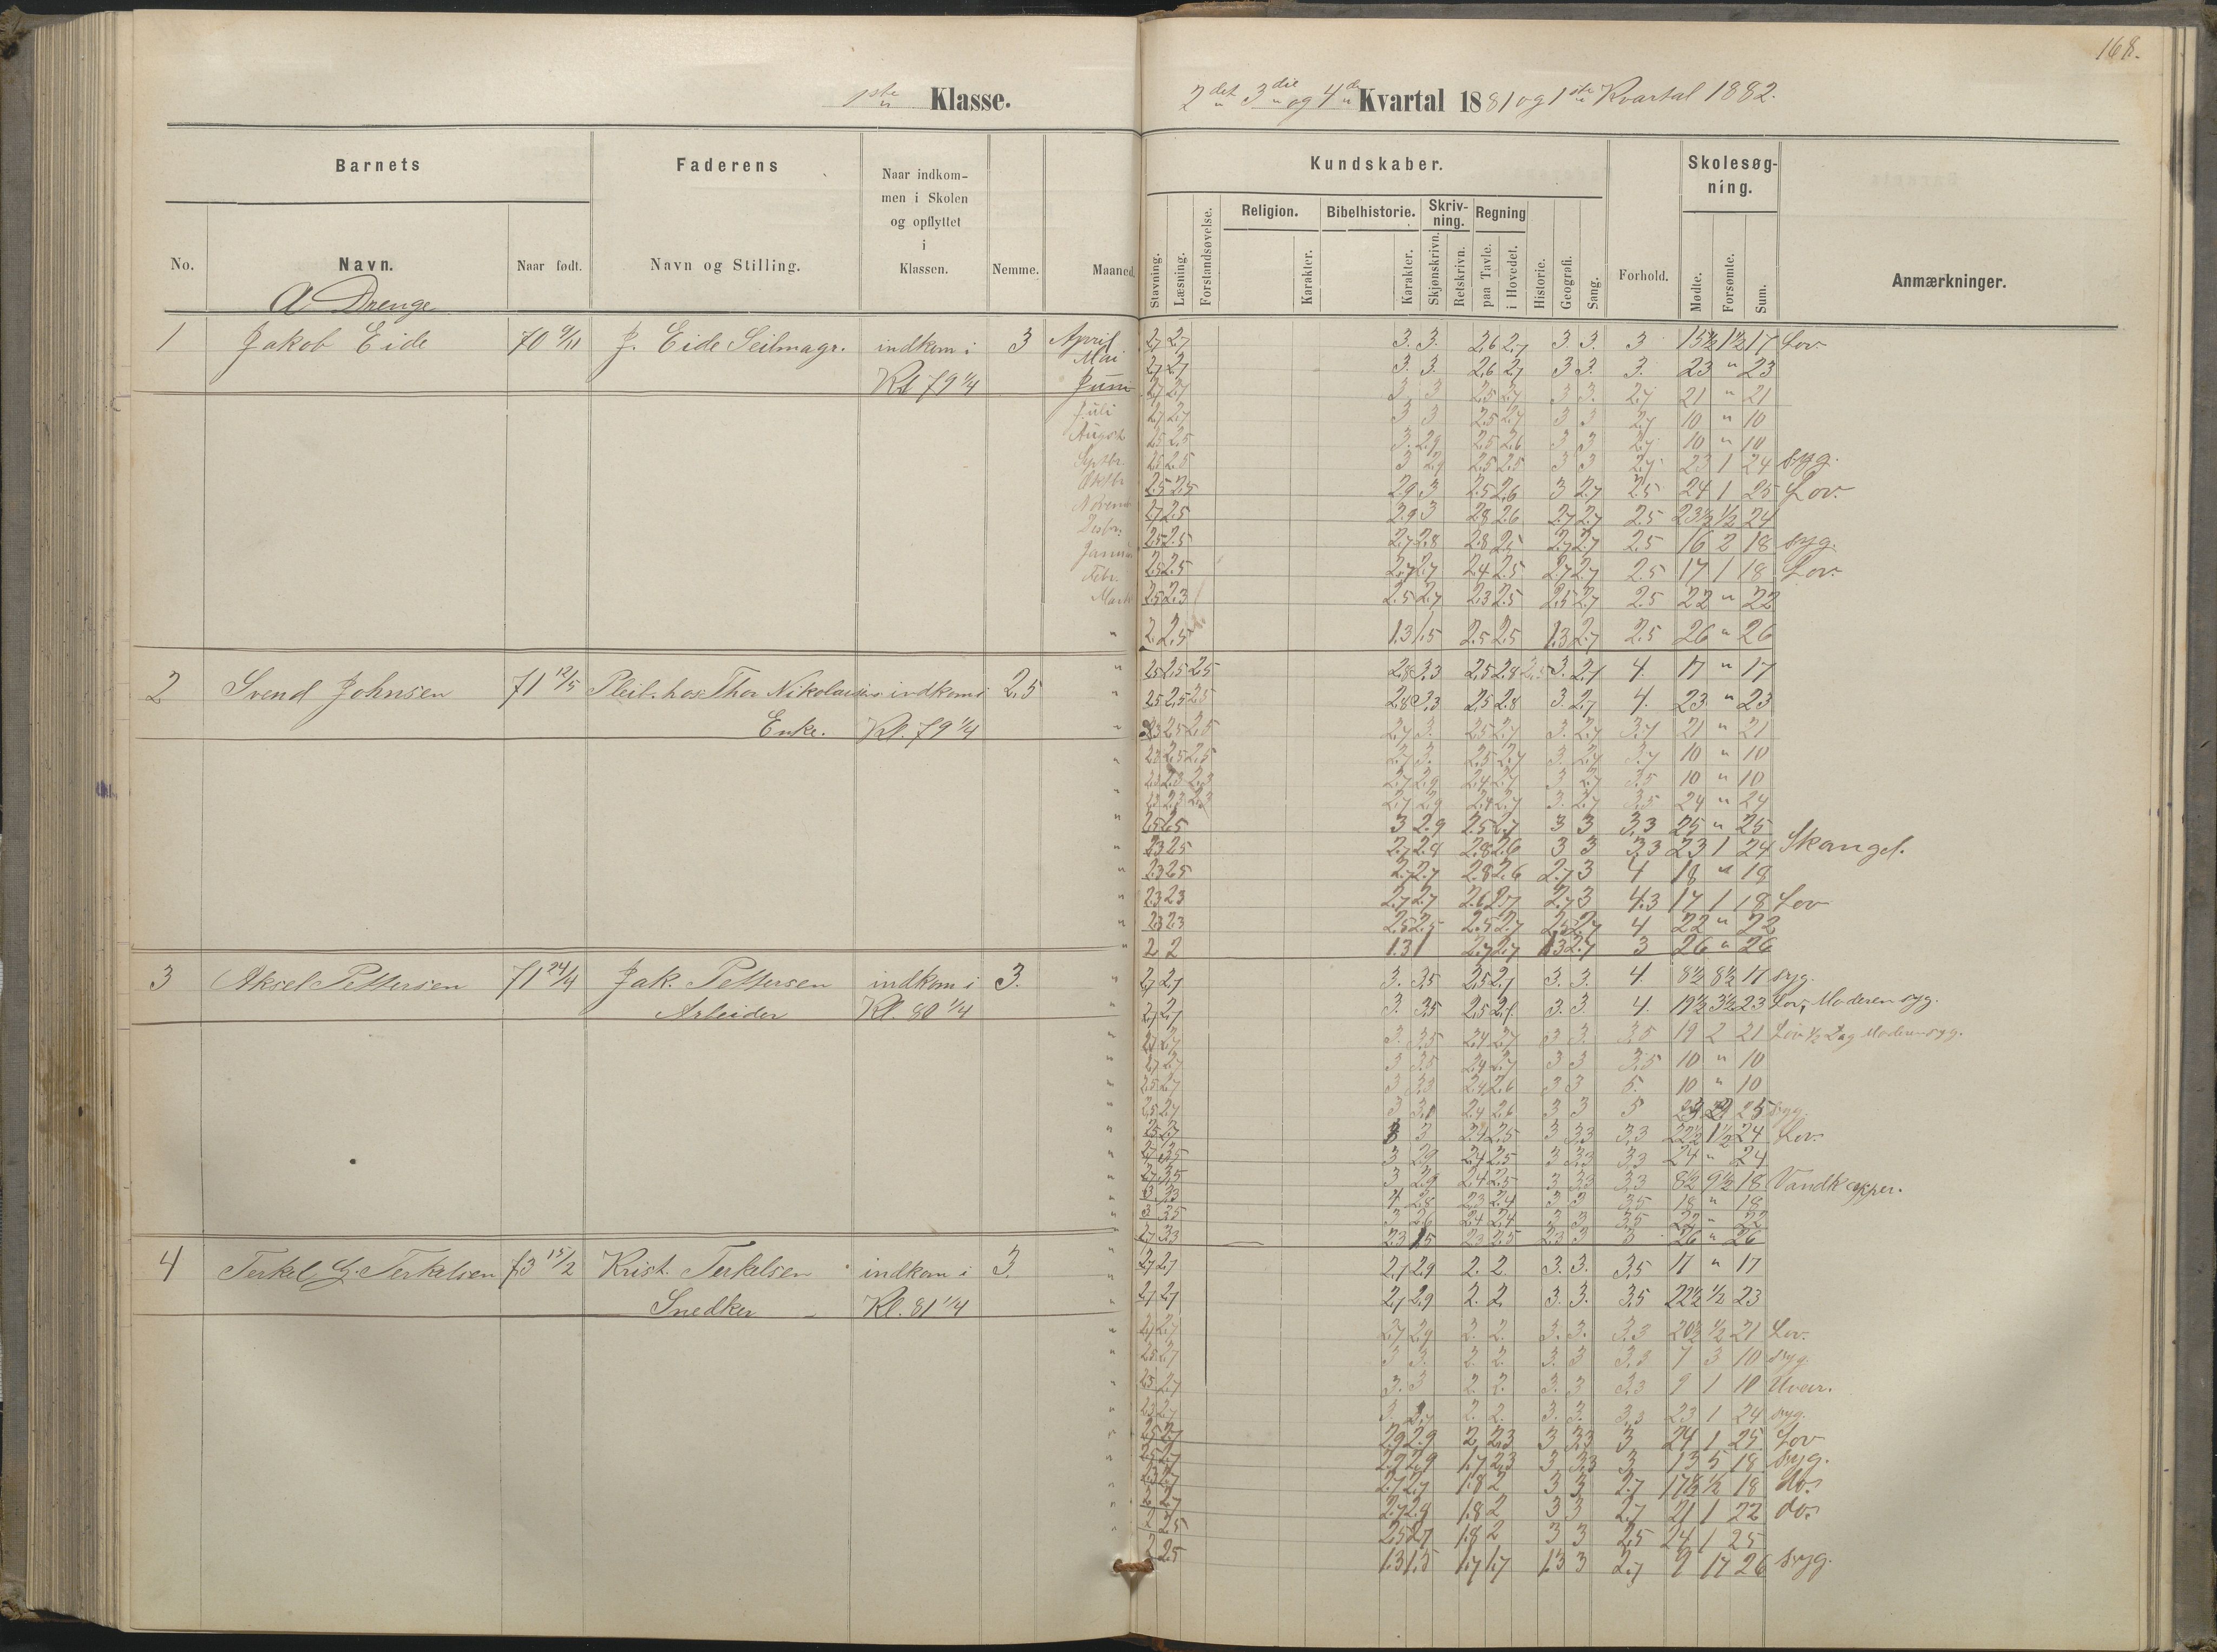 168.
1ste Klasse.
2det 3die og 4de Kvartal 1881 og 1ste Kvartal 1882.
Barnets
Faderens
Naar indkom-
men i Skolen
og opflyttet
i
Klassen.
Kundskaber.
Skolesøg-
ning.
Religion.
Bibelhistorie.
Skriv-
ning.
Regning
No.
Navn.
Naar født.
Navn og Stilling.
Nemme.
Maaned.
Stavning.
Læsning.
Forstandsøvelse.
Karakter.
Karakter.
Skjønskrivn.
Retskrivn.
paa Tavle.
i Hovedet.
Historie.
Geografi.
Sang.
Forhold.
Mødte.
Forsømte.
Sum.
Anmærkninger.
A. Drenge
1 Jakob Eide 70 9/11 J. Eide Seilmagr. indkom i 3 April 2,7 2,7 3. 3. 2,6 2,7 3. 3. 3 15½ 1½ 17 Lov
Mai 2,7 2,7 3. 3. 2,6 2,7 3 3. 3. 23 " 23
Kl 79 1/4 Juni 2,7 2,7 3 3 2,5 2,7 3 3. 2,7 21 " 21
Juli 2,7 2,7 3 3 2,5 2,7 3 3 2,7 10 " 10
August 2,5 2,5 3. 2,9 2,5 2,6 3 3 2,7 10 " 10
Septbr. 2,5 2,5 3 2,9 2,5 2,5 3 3 2,7 23 1 24 syg.
Oktbr 2.5 2,5 2,9 3 2.5 2,6 3 2,7 2.5 24 1 25 Lov.
Novemb 2,7 2,5 2,9 3 2,8 2,6 2,7 2,7 2.5 23½ ½ 24
Desbr. 2.5 2.5 2,7 2,8 2,8 2,5 2,7 2,7 2.5 16 2 18 syg.
Januar 2.5 2.5 2,7 2,7 2.4 2.5 2,7 2,7 2.5 17 1 18 Lov.
Febr. 2.5 2.3 2.5 2,7 2,3 2.5 2,5 2,7 2.5 22 " 22
Marts 2. 2,5 1.3 1.5 2.5 2.5 1.3 2,7 2,5 26 " 26
2 Svend Johnsen 71 12/5 Pleil. hos Thor Nikolaisens indkom i 2,5 2,5 2,5 2,5 2,8 3,3 2,5 2,8 3. 2,7 4. 17 " 17
2,5 2,5 2,5 2,8 3,3 2,5 2,8 3. 2,7 4. 23 " 23
Enke. Kl. 79 1/4 2,5 2,5 2,7 3. 2,5 2,7 3. 2,7 3,7 21 " 21
2,5 2,5 2,7 3. 2,5 2,7 3. 2,7 3,7 10 " 10
2,3 2,3 2,7 2,9 2,4 2,7 3 2,7 3,5 10 " 10
2,3 2,3 2,7 2,9 2,4 2,7 3. 2,7 3,5 24 " 24
2,5 2,5 3 2.9 2.5 2,7 3 3 3,3 25 " 25
2,3 2,5 2,7 2,8 2,8 2,6 3 3 3,3 23 1 24 Skangel.
2.3 2.5 2,7 2,7 2.8 2.6 2,7 3 4 18 " 18
2.3 2.3 2,7 2,7 2.6 2,7 2,7 3 4.3 17 1 18 Lov
2.3 2.3 2.5 2.5 2.5 2,7 2.5 2,7 4 22 " 22
2 2 1.3 1 2,7 2,7 1.3 2,7 3 26 " 26
3 Aksel Pettersen 71 24/4 Jak. Pettersen indkom i 3. 2,7 2,7 3. 3,5 2,5 2,7 3. 3. 4. 8½ 8½ 17 syg.
Arbeider Kl. 80 1/4 2,7 2,7 3. 3,5 2,5 2,7 3. 3. 4. 19½ 3½ 23 Lov, Moderen syg.
2,7 2,7 3. 3,5 2,4 2,7 3 3. 3,5 19 2 21 Lov ½ Dag Moderen syg.
2,7 2,7 3 3,5 2,4 2,7 3 3 3,5 10 " 10
2,5 2,7 3 3,3 2,4 2,6 3 3 5. 10 " 10
2,5 2,7 3 3,1 2,4 2,6 3 3 5 25 syg.
2,5 2,7 3 3 2.4 2.5 3 3,3 3,3 22½ 1½ 24 Lov.
2,7 3,5 3 2,9 2.4 2.5 3 3,3 3,3 24 " 24
2,7 3,5 3 2,9 2.4 2.5 3 3,3 3,3 8½ 9½ 18 Vandkopper.
3 3,3 4 2,8 2,3 2,4 3 3 3,5 18 " 18
3 3,5 3 2,6 2,4 2,4 3 3 3,5 22 " 22
2,7 3,3 2.3 1,5 2.3 2.5 2.3 3 3 26 " 26
4 Terkel G. Terkelsen 73 15/2 Krist. Terkelsen indkom i 3. 2,7 2,7 2,7 2,9 2. 2. 3. 3. 3,5 17 " 17
Snedker Kl. 81 1/4 2,7 2,7 2,7 2,9 2. 2. 3. 3. 3,5 22½ ½ 23
2,7 2,7 2,7 2,9 2. 2. 3. 3. 3,3 20½ ½ 21 Lov.
2,5 2,7 3 3. 2. 2. 3. 3 3,3 7 3 10 syg.
2,5 2,7 3. 3 2. 2. 3. 3 3,3 9 1 10 Uveir.
2,3 2,7 3. 2. 2. 3. 3. 3,3 23 1 24 syg.
2,5 2,7 2,9 2,9 2 2,3 3 3,3 3 24 1 25 Lov
2,5 2,7 2,9 1,7 2,3 3 3,3 3 13 5 18 syg.
2,3 2,7 2,7 2,7 1.8 2 3 3 2,7 17½ ½ 18 do.
2 2,7 1.8 2 3 3 2,7 21 1 22 do.
2 2,5 2,5 2,7 1.8 2 3 3 2,5 24 1 25
2 2.5 1.3 1.5 1,7 1,7 1.3 3 2,7 9 17 26 syg.